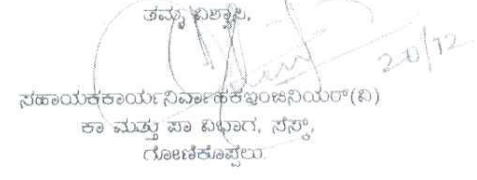 ತಮ್ಮ ವಿಶ್ವಾಸಿ,
20/12
ಸಹಾಯಕಕಾರ್ಯನಿರ್ವಾಹಕಇಂಜಿನಿಯರ್(ವಿ)
ಕಾ ಮತ್ತು ಪಾ ವಿಭಾಗ, ಸೆಸ್ಕ್,
ಗೋಣಿಕೊಪ್ಪಲು.